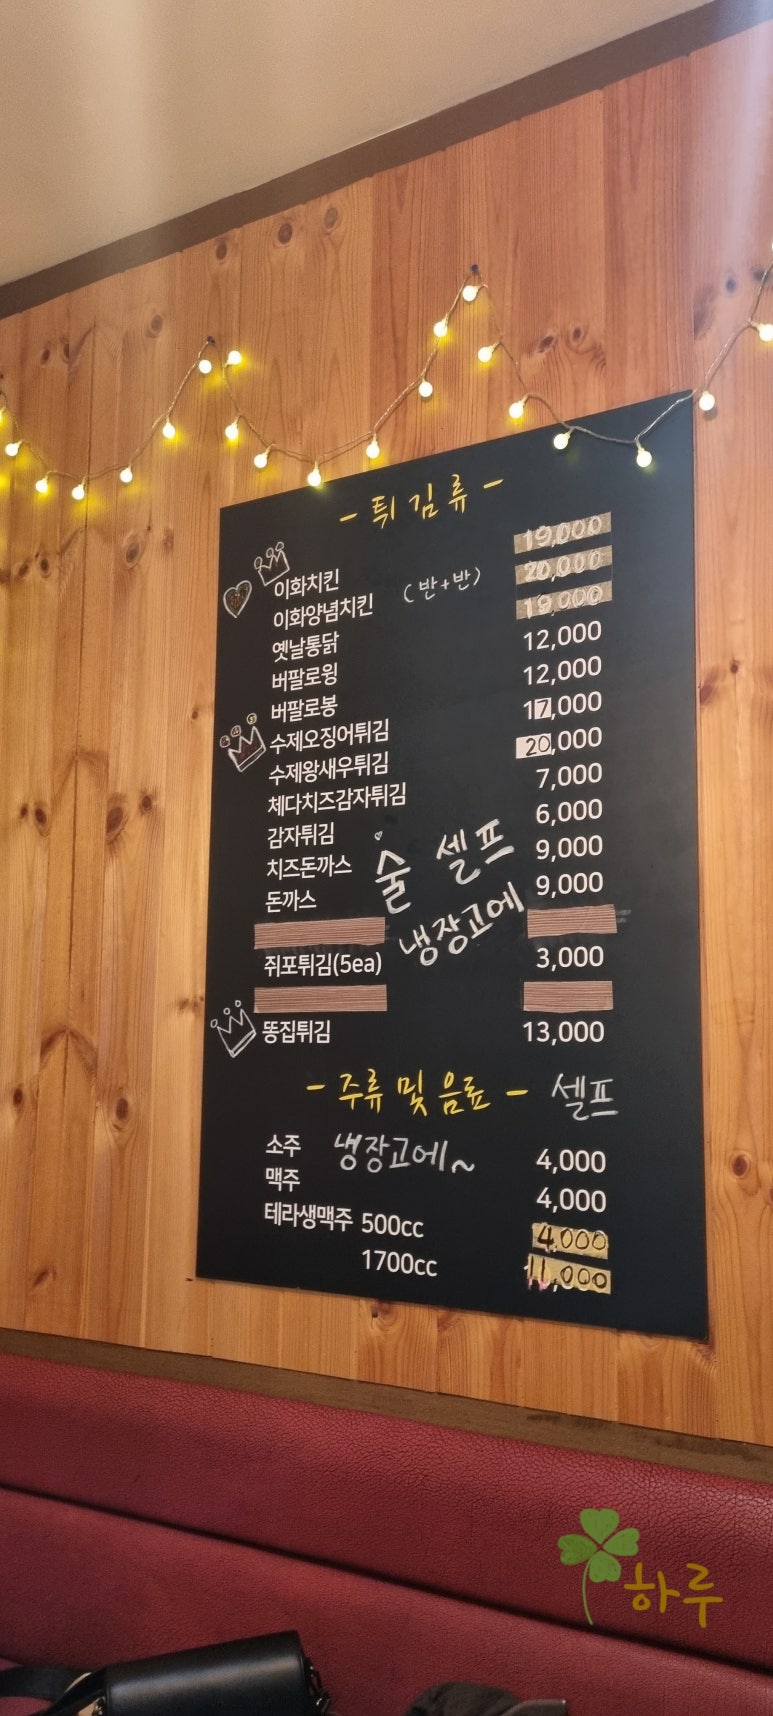 - 튀김류 -
이화치킨 19,000
이화양념치킨 (반+반) 20,000
옛날통닭 19,000
버팔로윙 12,000
버팔로봉 12,000
수제오징어튀김 17,000
수제왕새우튀김 20,000
체다치즈감자튀김 7,000
감자튀김 6,000
치즈돈까스 9,000
돈까스 9,000
술 셀프
냉장고에
쥐포튀김(5ea) 3,000
똥집튀김 13,000
- 주류 및 음료 - 셀프
소주 냉장고에~ 4,000
맥주 4,000
테라생맥주 500cc 4,000
1700cc 11,000
하루